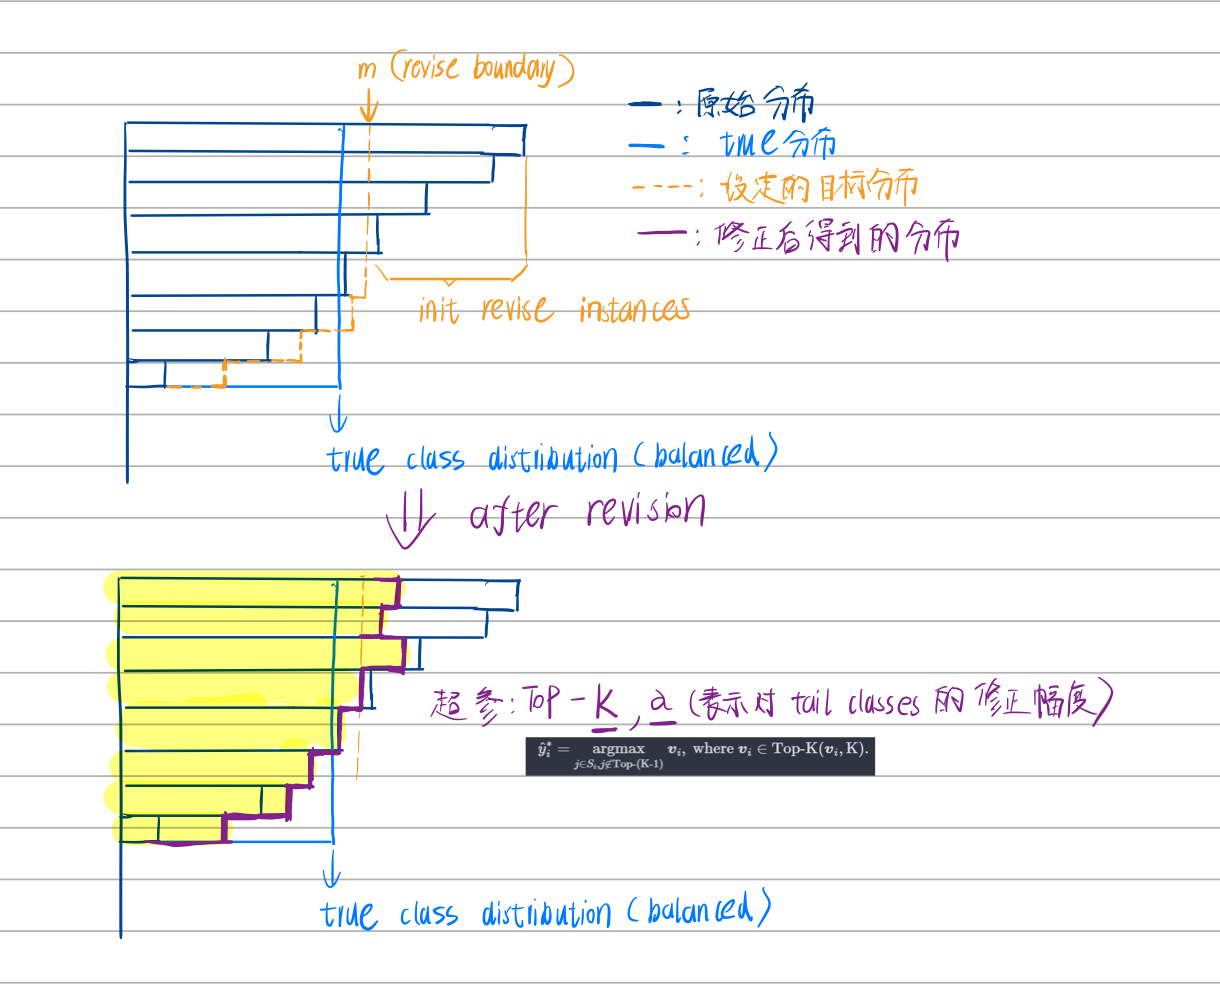 m (revise boundary)
— : 原始分布
— : true分布
----: 设定的目标分布
— : 修正后得到的分布
init revise instances
true class distribution (balanced)
after revision
超参: Top-K, a (表示对 tail classes 的修正幅度)
ŷ_i^* = argmax_{j∈S_i, j∉Top-(K-1)} v_i, where v_i ∈ Top-K(v_i, K).
true class distribution (balanced)